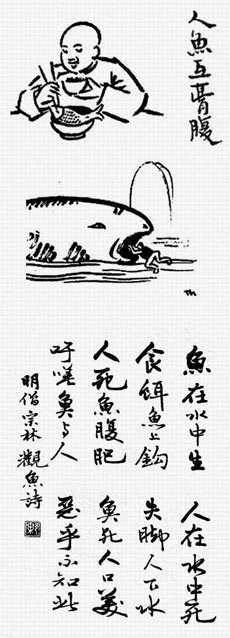 人魚互腹
魚在水中生 人在水中死
食餌魚上鈎 失脚人下水
人死魚腹肥 魚死人口美
吁嗟魚与人 惡乎不知此
明僧宗林觀魚詩